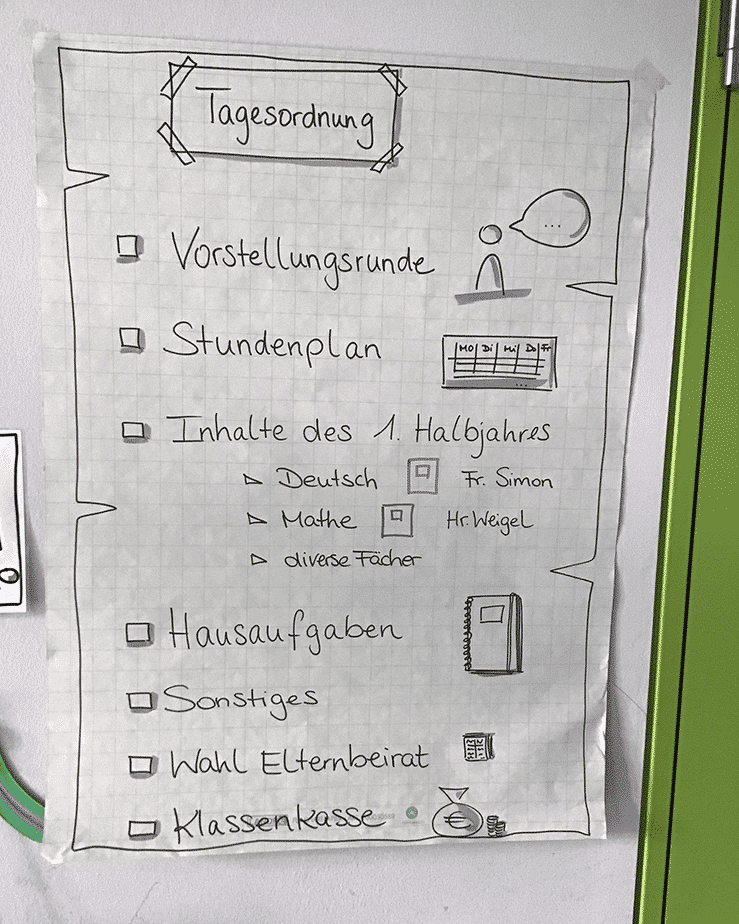 Tagesordnung
Vorstellungsrunde
...
Stundenplan
Mo Di Mi Do Fr
...
Inhalte des 1. Halbjahres
Deutsch Fr. Simon
Mathe Hr. Weigel
diverse Fächer
Hausaufgaben
Sonstiges
Wahl Elternbeirat
Klassenkasse
€